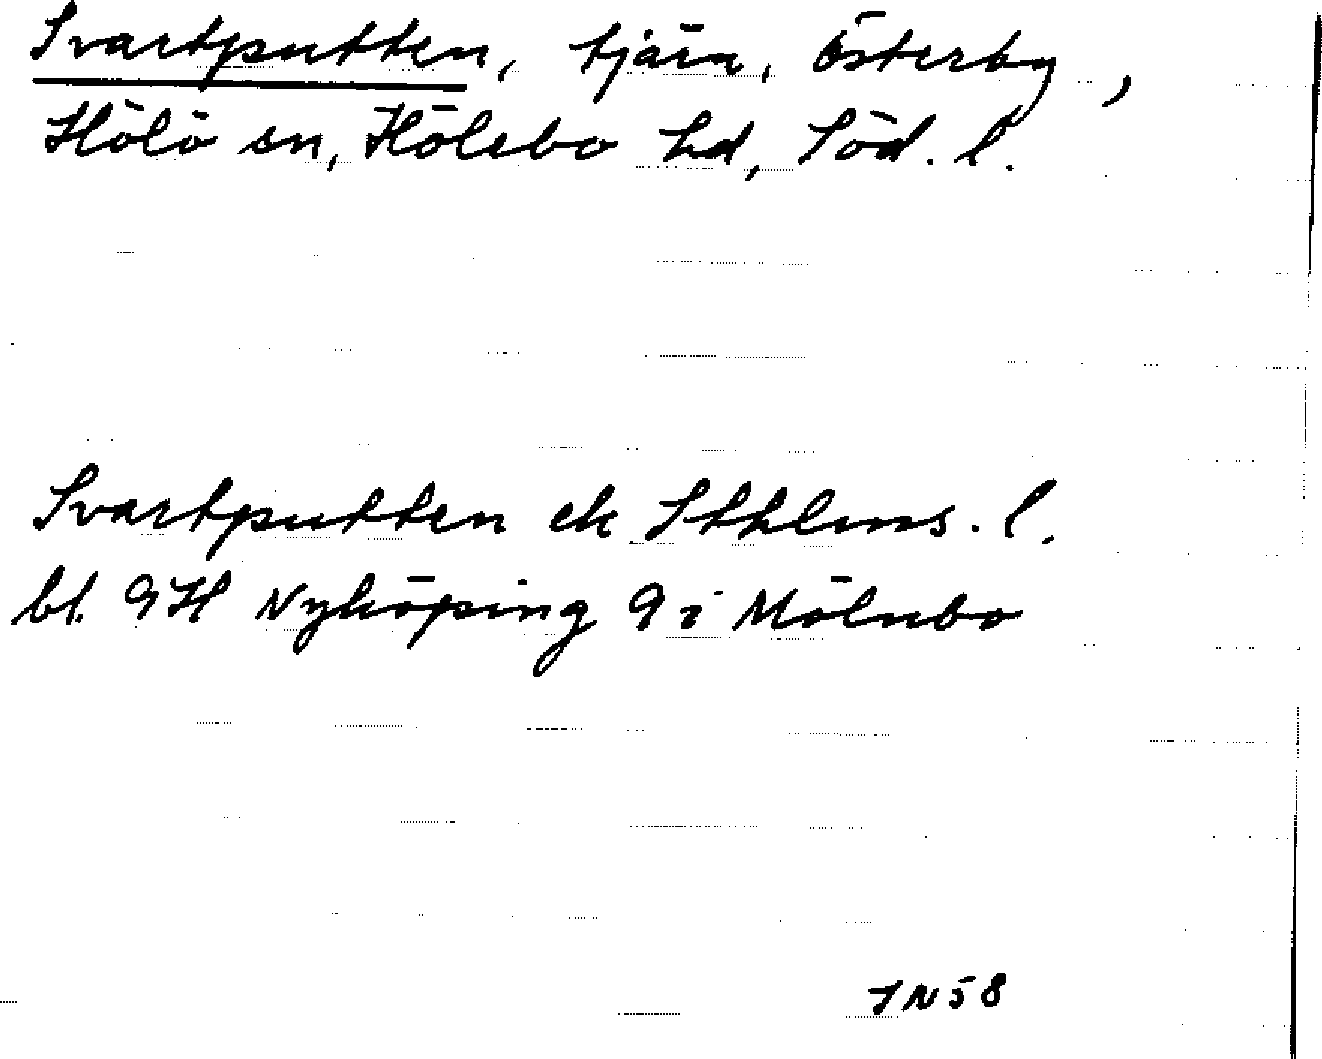 Svartputten, tjärn, Österby,
Hölö sn, Hölebo hd, Söd. l.
Svartputten ek Sthlms. l.
bl. 9H Nyköping 9 i Mölnbo
IN58